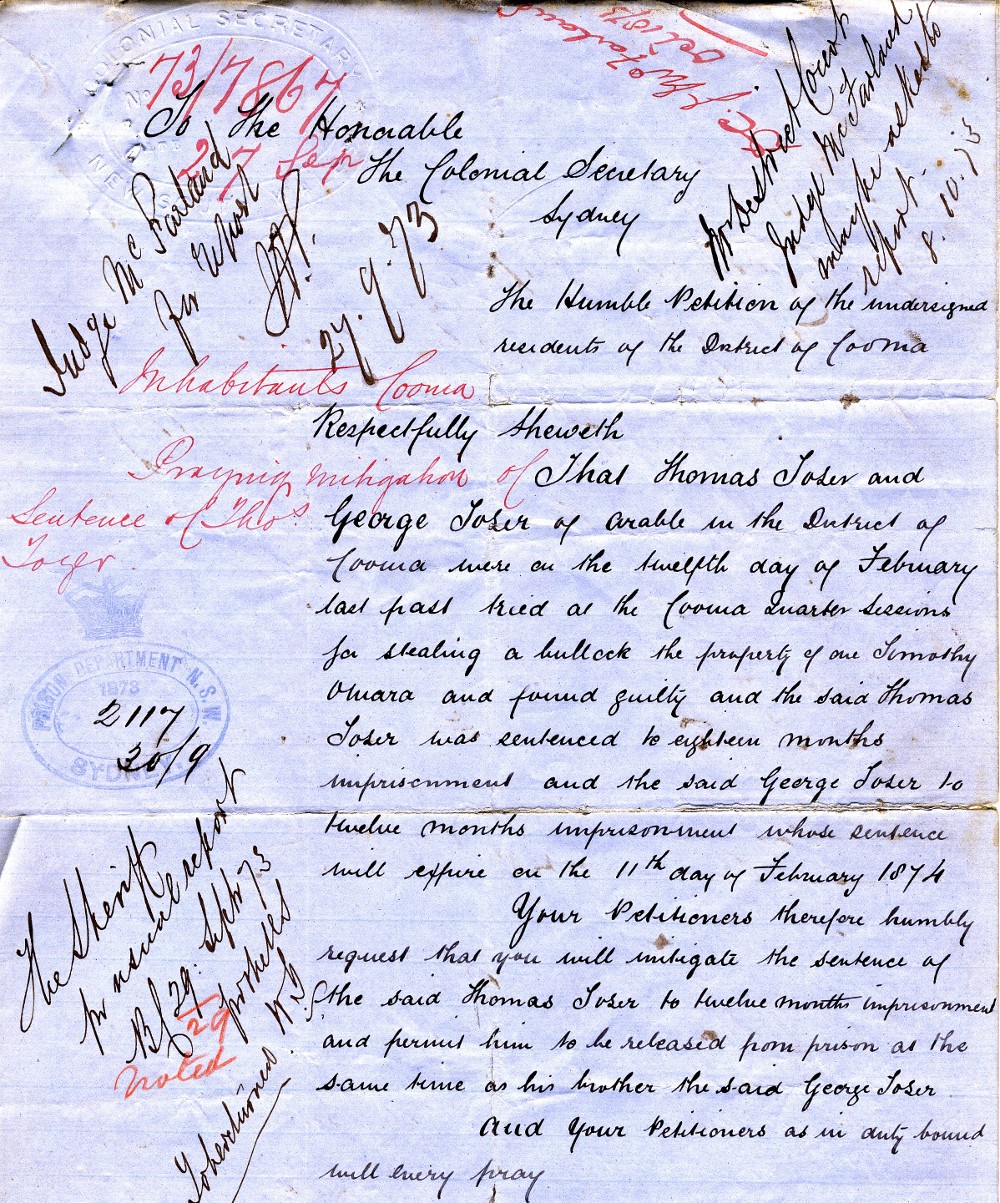 COLONIAL SECRETARY
No 73/7867
27 Sep
To The Honorable
The Colonial Secretary
Sydney
Judge McFarland
for report
27.9.73
Mr District Court
Judge McFarland
may be asked to
report
8.10.73
The Humble Petition of the undersigned
residents of the District of Cooma
Inhabitants Cooma
Praying mitigation of
Sentence of Thos
Tozer.
Respectfully Sheweth
That Thomas Tozer and
George Tozer of Arable in the District of
Cooma were on the twelfth day of February
last past tried at the Cooma Quarter Sessions
for stealing a bullock the property of one Timothy
Omara and found guilty and the said Thomas
Tozer was sentenced to eighteen months
imprisonment and the said George Tozer to
twelve months imprisonment whose sentence
will expire on the 11th day of February 1874
PRISON DEPARTMENT N.S.W.
1873
2117
30/9
SYDNEY
Your Petitioners therefore humbly
request that you will mitigate the sentence of
the said Thomas Tozer to twelve months imprisonment
and permit him to be released from prison at the
same time as his brother the said George Tozer
And Your Petitioners as in duty bound
will every pray
The Sheriff
for usual report
29 Septr 73
29
noted
To be returned